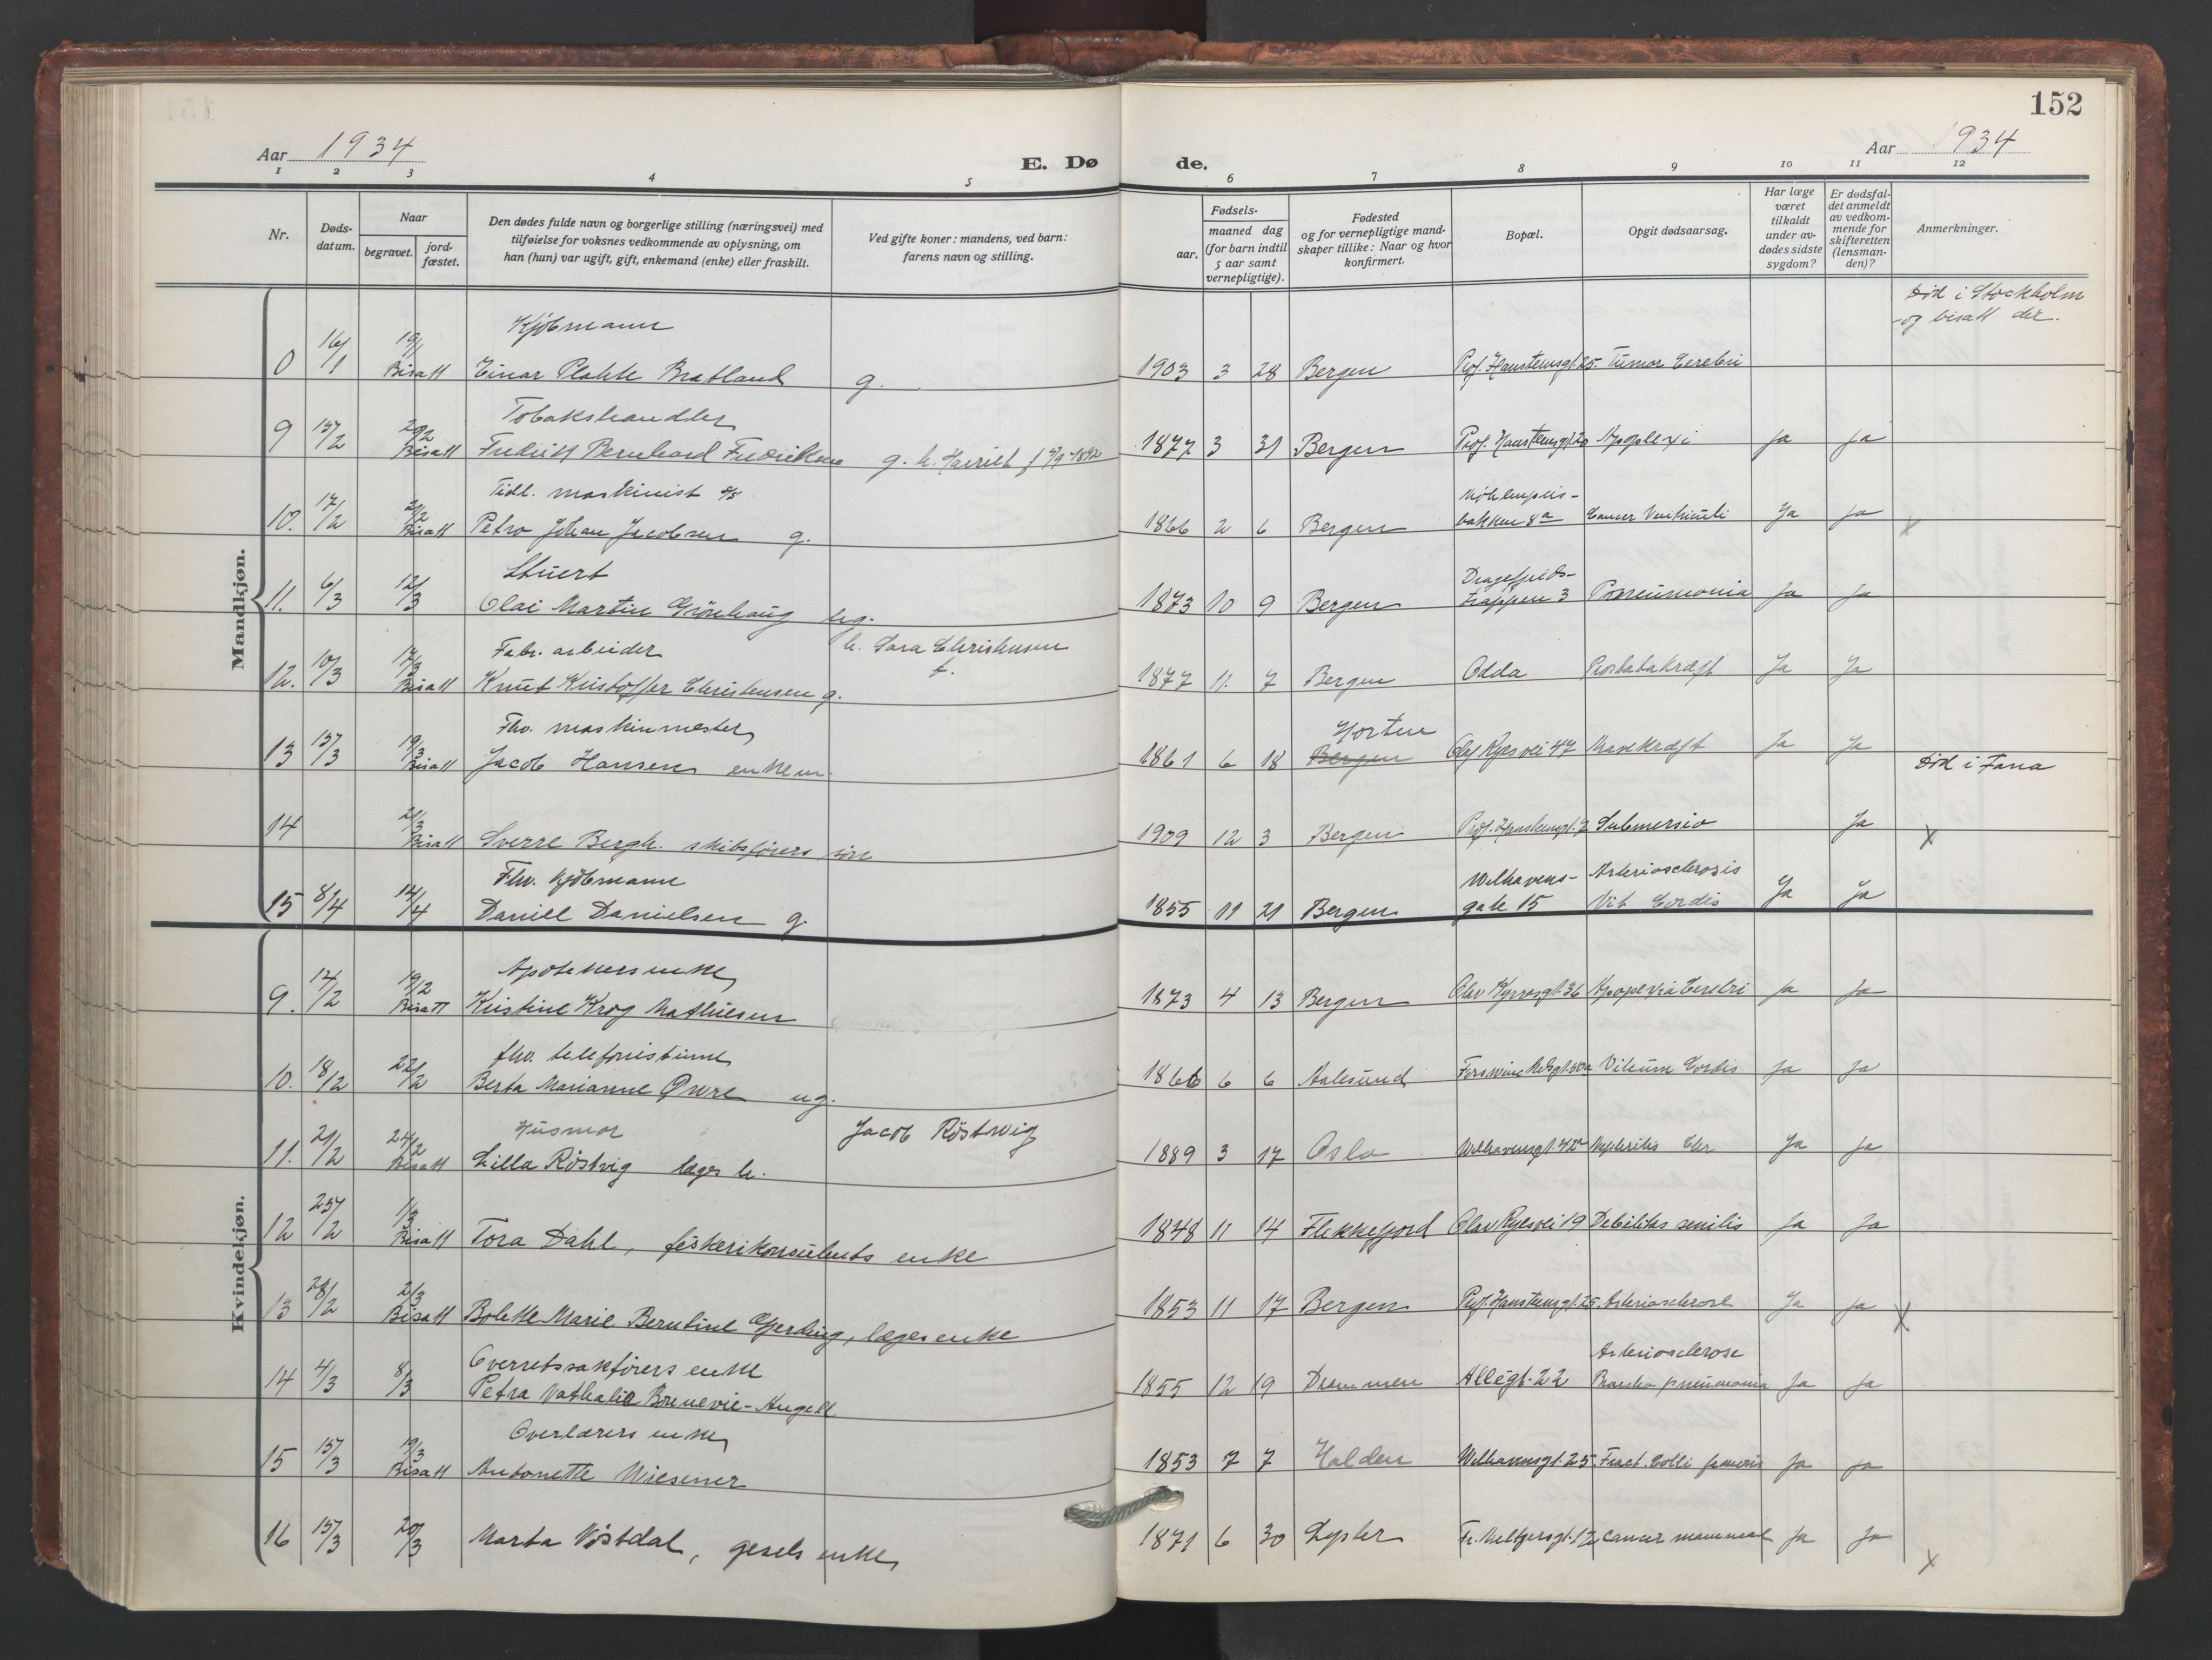 152
Aar 1934
E. Døde.
Aar 1934
1 2 3 4 5 6 7 8 9 10 11 12
Nr.
Døds-datum.
Naar
begravet.
jord-fæstet.
Den dødes fulde navn og borgerlige stilling (næringsvei) med
tilføielse for voksnes vedkommende av oplysning, om
han (hun) var ugift, gift, enkemand (enke) eller fraskilt.
Ved gifte koner: mandens, ved barn:
farens navn og stilling.
Fødsels-
aar.
maaned dag
(for barn indtil
5 aar samt
vernepligtige).
Fødested
og for vernepligtige mand-
skaper tillike: Naar og hvor
konfirmert.
Bopæl.
Opgit dødsaarsag.
Har læge
været
tilkaldt
under av-
dødes sidste
sygdom?
Er dødsfal-
det anmeldt
av vedkom-
mende for
skifteretten
(lensman-
den)?
Anmerkninger.
Mandkjøn.
Død i Stockholm
og bisatt der.
Kjøbmann
0 16/1 19/1 Bisatt Einar Bratland g. 1903 3 28 Bergen Prof. Hansteensgt. 25. Tumor Cerebri
Tobakshandler
9 15/2 20/2 Bisatt Fredrik Bernhard Fredriksen g. h. Harriet f 1892 1877 3 31 Bergen Prof. Hansteensgt. 20 Apoplexi ja ja
Tidl. maskinist d/s
10. 17/2 21/2 Bisatt Petro Johan Jacobsen g. 1866 2 6 Bergen Møhlenpris-
bakken 8a Cancer Ventriculi Ja ja x
Stuert
11. 6/3 12/3 Olai Martin Grönhaug ug. 1873 10 9 Bergen Dragefjelds-
trappen 3 Pneumonia Ja Ja
Fabr. arbeider h. Sara Christensen
f.
12. 10/3 17/3 Bisatt Knut Kristoffer Christensen g. 1877 11. 7 Bergen Odda Prostatakræft Ja Ja
Fhv. maskinmester Horten
13 15/3 19/3 Bisatt Jacob Hansen enkem. 1861 6 18 Bergen Olaf Ryes vei 47 Mavekræft Ja Ja
Død i Fana
14 21/3 Bisatt Sverre Bergh. skibsførers søn 1909 12 3 Bergen Prof. Hansteensgt. 7 Submersio Ja x
Fhv. kjøbmann
15 8/4 14/4 Daniel Danielsen g. 1855 11 21 Bergen Welhavens-
gate 15 Arteriosclerosis
Vit Cordis Ja Ja
Kvindekjøn.
Apotekers enke
9. 12/2 19/2 Bisatt Kristine Krog Mathiesen 1873 4 13 Bergen Olav Kyrresgt. 36 Apoplexia Cerebri ja Ja
fhv. telefonistinne
10. 18/2 22/2 Berta Marianne Øwre ug. 1866 6 6 Aalesund Vitium Cordis Ja Ja
Husmor Jacob Röstvig
11. 21/2 24/2 Bisatt Lilla Röstvig læges h. 1889 3 17 Oslo Welhavensgt. 42a Nephritis Chr Ja Ja
12 25/2 1/3 Bisatt Tora Dahl, fiskerikonsulents enke 1848 11 14 Flekkefjord Olav Ryesvei 19 Debilitas senilis Ja Ja
13 28/2 2/3 Bisatt Bolette Marie Berntine Gjerding, læges enke 1853 11 17 Bergen Prof. Hansteensgt. 25. Arteriosclerose Ja Ja x
Overretssakførers enke Arteriosclerose
14 4/3 8/3 Petra Nathalia Angell 1855 12 19 Drammen Allégt. 22 Broncho pneumonia Ja Ja
Overlærers enke
15 15/3 19/3 Bisatt Antonette Wiesener 1853 7 7 Halden Welhavensgt. 25. Fract. Colli femoris Ja Ja
16 15/3 20/3 Marta Vöstdal, enke 1871 6 30 Lyster Fr. Meltzersgt. 12 Cancer mammae Ja Ja x